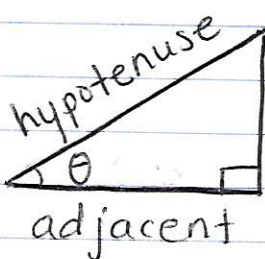 hypotenuse
θ
adjacent